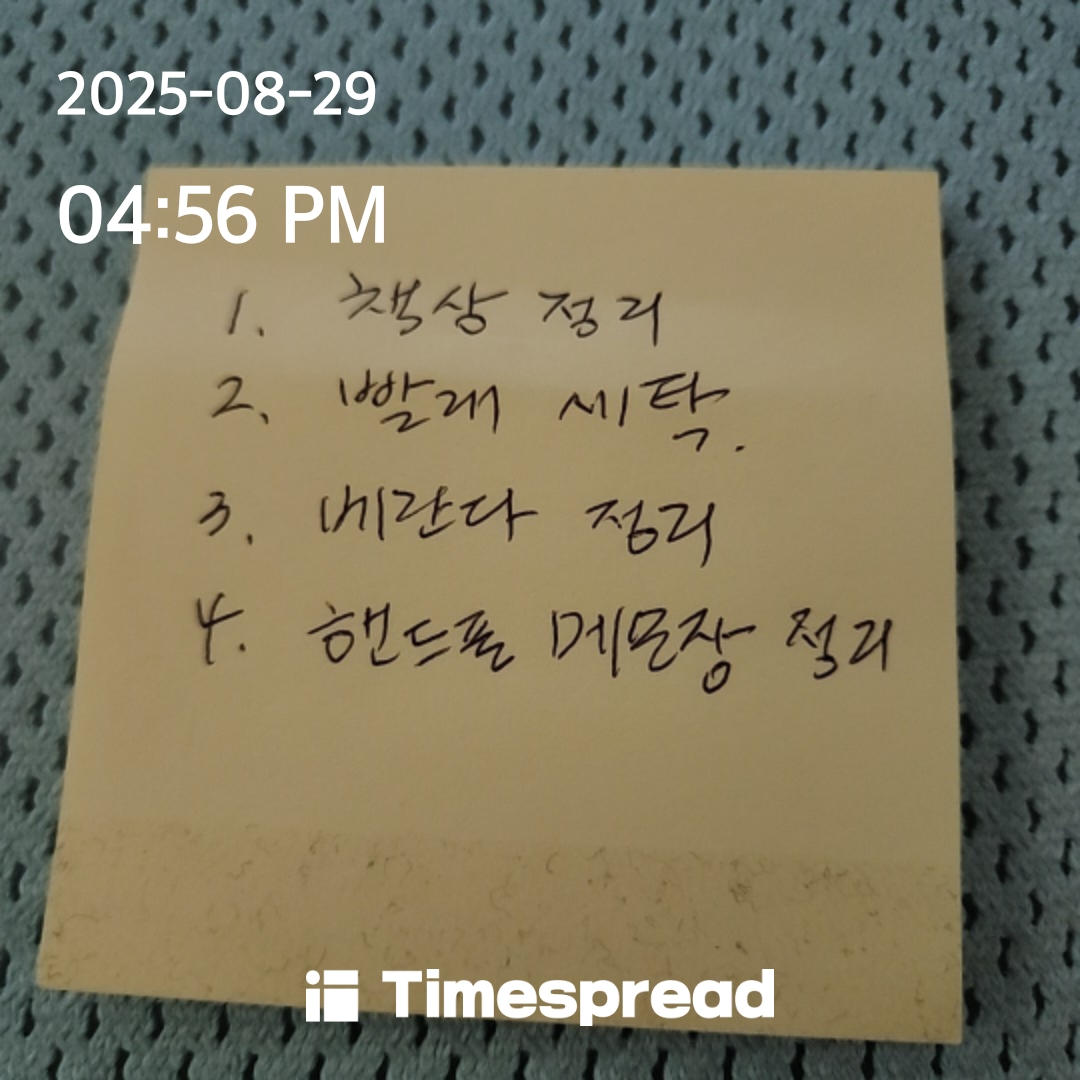 2025-08-29
04:56 PM
1. 책상 정리
2. 빨래 세탁.
3. 베란다 정리
4. 핸드폰 메모장 정리
Timespread